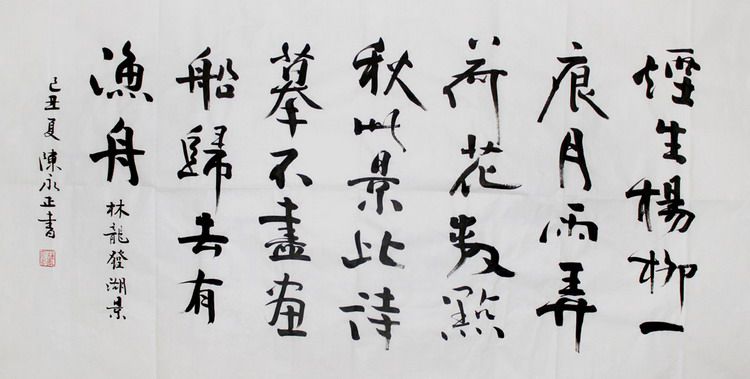 煙生楊柳一
痕月雨弄
荷花數點
秋此景此詩
摹不盡畫
船歸去有
漁舟
林龍發湖景
己丑夏陳永正書